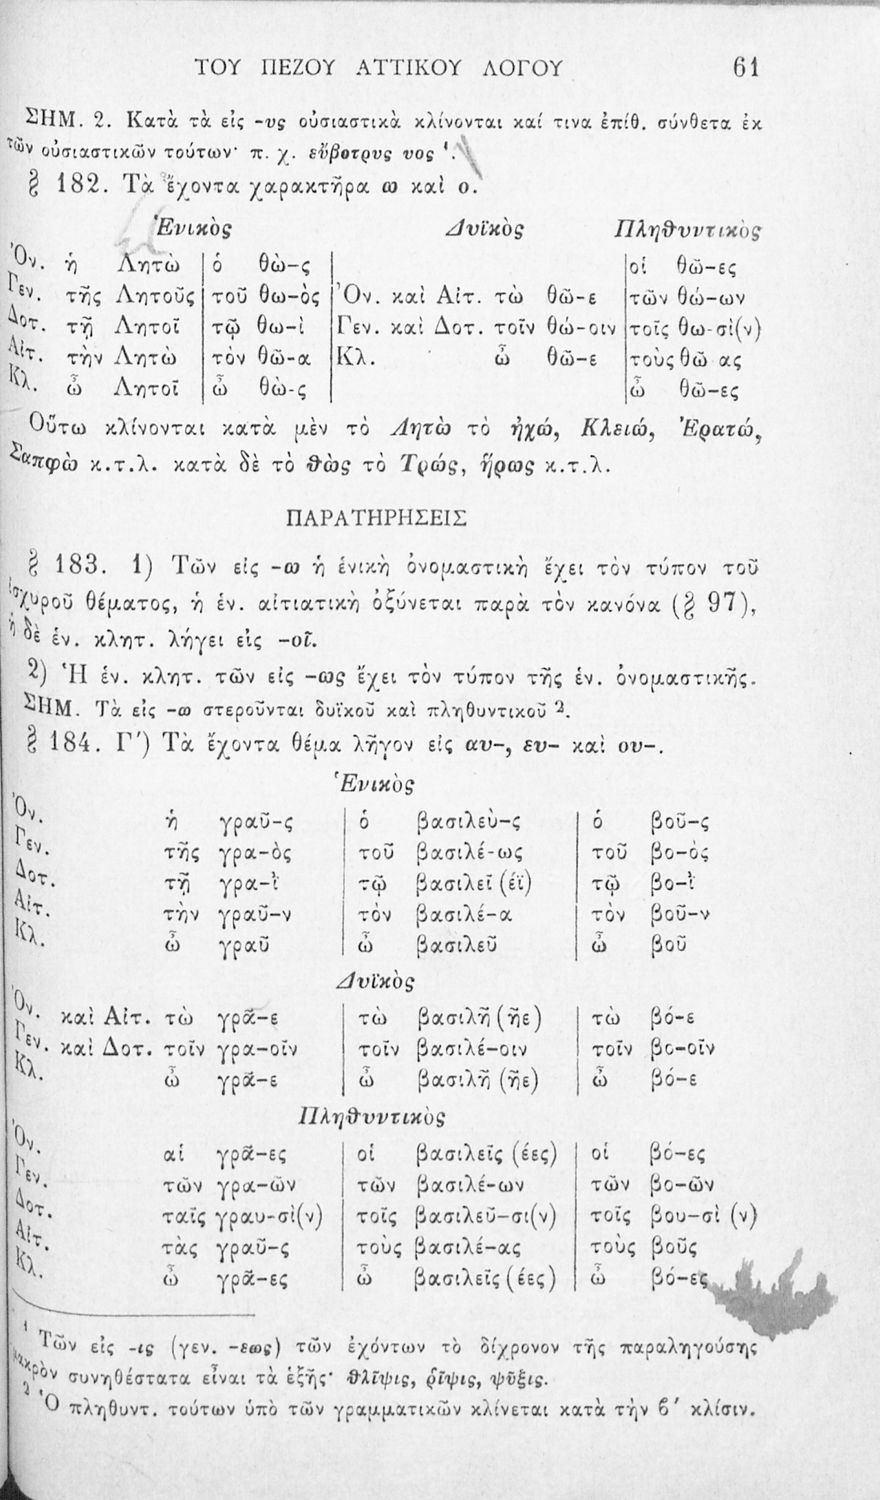 ΤΟΥ ΠΕΖΟΥ ΑΤΤΙΚΟΥ ΛΟΓΟΥ 61
ΣΗΜ. 2. Κατὰ τὰ εἰς -υς οὐσιαστικὰ κλίνονται καί τινα ἐπίθ. σύνθετα ἐκ
τῶν οὐσιαστικῶν τούτων· π. χ. εὔβοτρυς υος ¹.
§ 182. Τὰ ἔχοντα χαρακτῆρα ω καὶ ο.
Ἑνικὸς Δυϊκὸς Πληθυντικὸς
Ὀν. ἡ Λητὼ ὁ θὼ-ς οἱ θῶ-ες
Γεν. τῆς Λητοῦς τοῦ θω-ὸς Ὀν. καὶ Αἰτ. τὼ θῶ-ε τῶν θώ-ων
Δοτ. τῇ Λητοῖ τῷ θω-ὶ Γεν. καὶ Δοτ. τοῖν θώ-οιν τοῖς θω-σὶ(ν)
Αἰτ. τὴν Λητὼ τὸν θῶ-α Κλ. ὦ θῶ-ε τοὺς θῶ ας
Κλ. ὦ Λητοῖ ὦ θὼ-ς ὦ θῶ-ες
Οὕτω κλίνονται κατὰ μὲν τὸ Λητὼ τὸ ἠχώ, Κλειώ, Ἐρατώ,
Σαπφὼ κ.τ.λ. κατὰ δὲ τὸ θὼς τὸ Τρώς, ἥρως κ.τ.λ.
ΠΑΡΑΤΗΡΗΣΕΙΣ
§ 183. 1) Τῶν εἰς -ω ἡ ἑνικὴ ὀνομαστικὴ ἔχει τὸν τύπον τοῦ
ἰσχυροῦ θέματος, ἡ ἑν. αἰτιατικὴ ὀξύνεται παρὰ τὸν κανόνα (§ 97),
ἡ δὲ ἑν. κλητ. λήγει εἰς -οῖ.
2) Ἡ ἑν. κλητ. τῶν εἰς -ως ἔχει τὸν τύπον τῆς ἑν. ὀνομαστικῆς.
ΣΗΜ. Τὰ εἰς -ω στεροῦνται δυϊκοῦ καὶ πληθυντικοῦ ².
§ 184. Γ΄) Τὰ ἔχοντα θέμα λῆγον εἰς αυ-, ευ- καὶ ου-.
Ἑνικὸς
Ὀν. ἡ γραῦ-ς ὁ βασιλεὺ-ς ὁ βοῦ-ς
Γεν. τῆς γρα-ὸς τοῦ βασιλέ-ως τοῦ βο-ὸς
Δοτ. τῇ γρα-ῒ τῷ βασιλεῖ (έϊ) τῷ βο-ῒ
Αἰτ. τὴν γραῦ-ν τὸν βασιλέ-α τὸν βοῦ-ν
Κλ. ὦ γραῦ ὦ βασιλεῦ ὦ βοῦ
Δυϊκὸς
Ὀν. καὶ Αἰτ. τὼ γρᾶ-ε τὼ βασιλῆ (ῆε) τὼ βό-ε
Γεν. καὶ Δοτ. τοῖν γρα-οῖν τοῖν βασιλέ-οιν τοῖν βο-οῖν
Κλ. ὦ γρᾶ-ε ὦ βασιλῆ (ῆε) ὦ βό-ε
Πληθυντικὸς
Ὀν. αἱ γρᾶ-ες οἱ βασιλεῖς (έες) οἱ βό-ες
Γεν. τῶν γρα-ῶν τῶν βασιλέ-ων τῶν βο-ῶν
Δοτ. ταῖς γραυ-σὶ(ν) τοῖς βασιλεῦ-σι(ν) τοῖς βου-σὶ (ν)
Αἰτ. τὰς γραῦ-ς τοὺς βασιλέ-ας τοὺς βοῦς
Κλ. ὦ γρᾶ-ες ὦ βασιλεῖς (έες) ὦ βό-ες
¹ Τῶν εἰς -ις (γεν. -εως) τῶν ἐχόντων τὸ δίχρονον τῆς παραληγούσης
μακρὸν συνηθέστατα εἶναι τὰ ἑξῆς· θλῖψις, ῥῖψις, ψῦξις.
² Ὁ πληθυντ. τούτων ὑπὸ τῶν γραμματικῶν κλίνεται κατὰ τὴν ϐ΄ κλίσιν.